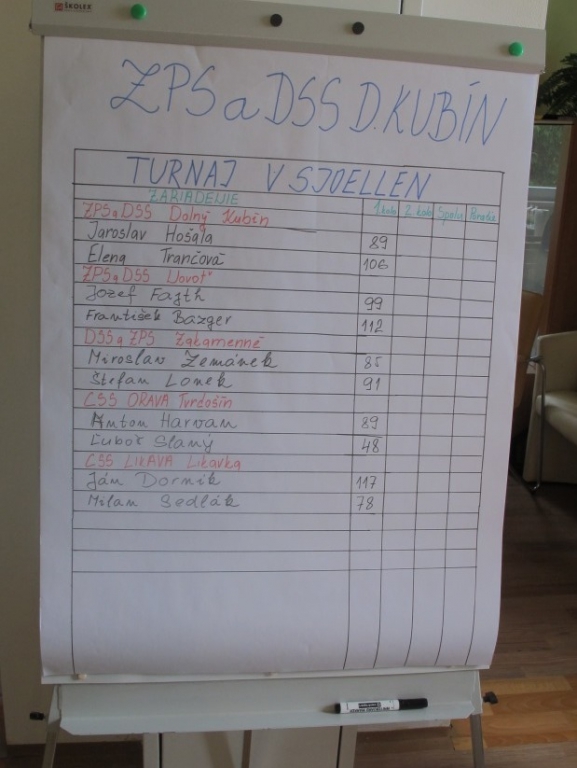 ŠKOLEX
ZPS a DSS D. KUBÍN
TURNAJ V SJOELLEN
ZARIADENIE 1 kolo 2 kolo Spolu Poradie
ZPS a DSS Dolný Kubín
Jaroslav Hošála 89
Elena Trančová 106
ZPS a DSS
Jozef Fajth 99
František Bazger 112
DSS a ZPS Zákamenné
Miroslav Zemánek 85
Štefan Lonek 91
CSS ORAVA Tvrdošín
Anton Harvan 89
Ľuboš Slaný 48
CSS LIKAVA Likavka
Ján Dorník 117
Milan Sedlák 78